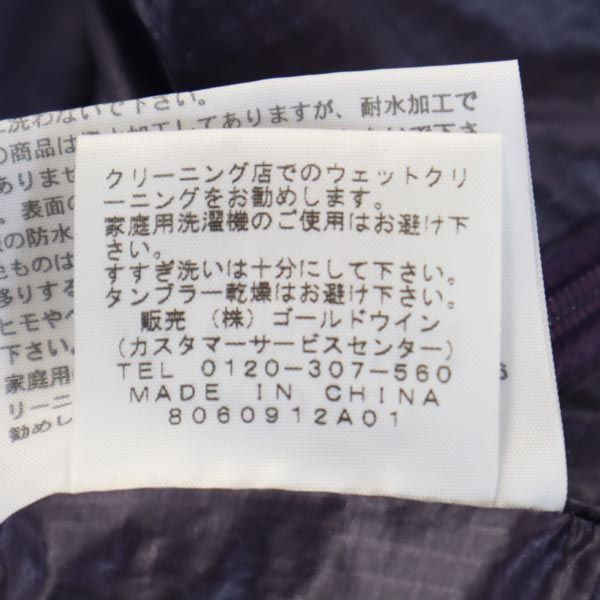 洗わないで下さい。
の商品は
加工してありますが、耐水加工で
ありませ
表面の
の防水
ものは
移りする
ヒモやベ
下さい。
家庭用
リーニ
勧めし
クリーニング店でのウェットクリ
ーニングをお勧めします。
家庭用洗濯機のご使用はお避け下
さい。
すすぎ洗いは十分にして下さい。
タンブラー乾燥はお避け下さい。
販売 (株) ゴールドウイン
(カスタマーサービスセンター)
TEL 0120-307-560
MADE IN CHINA
8060912A01